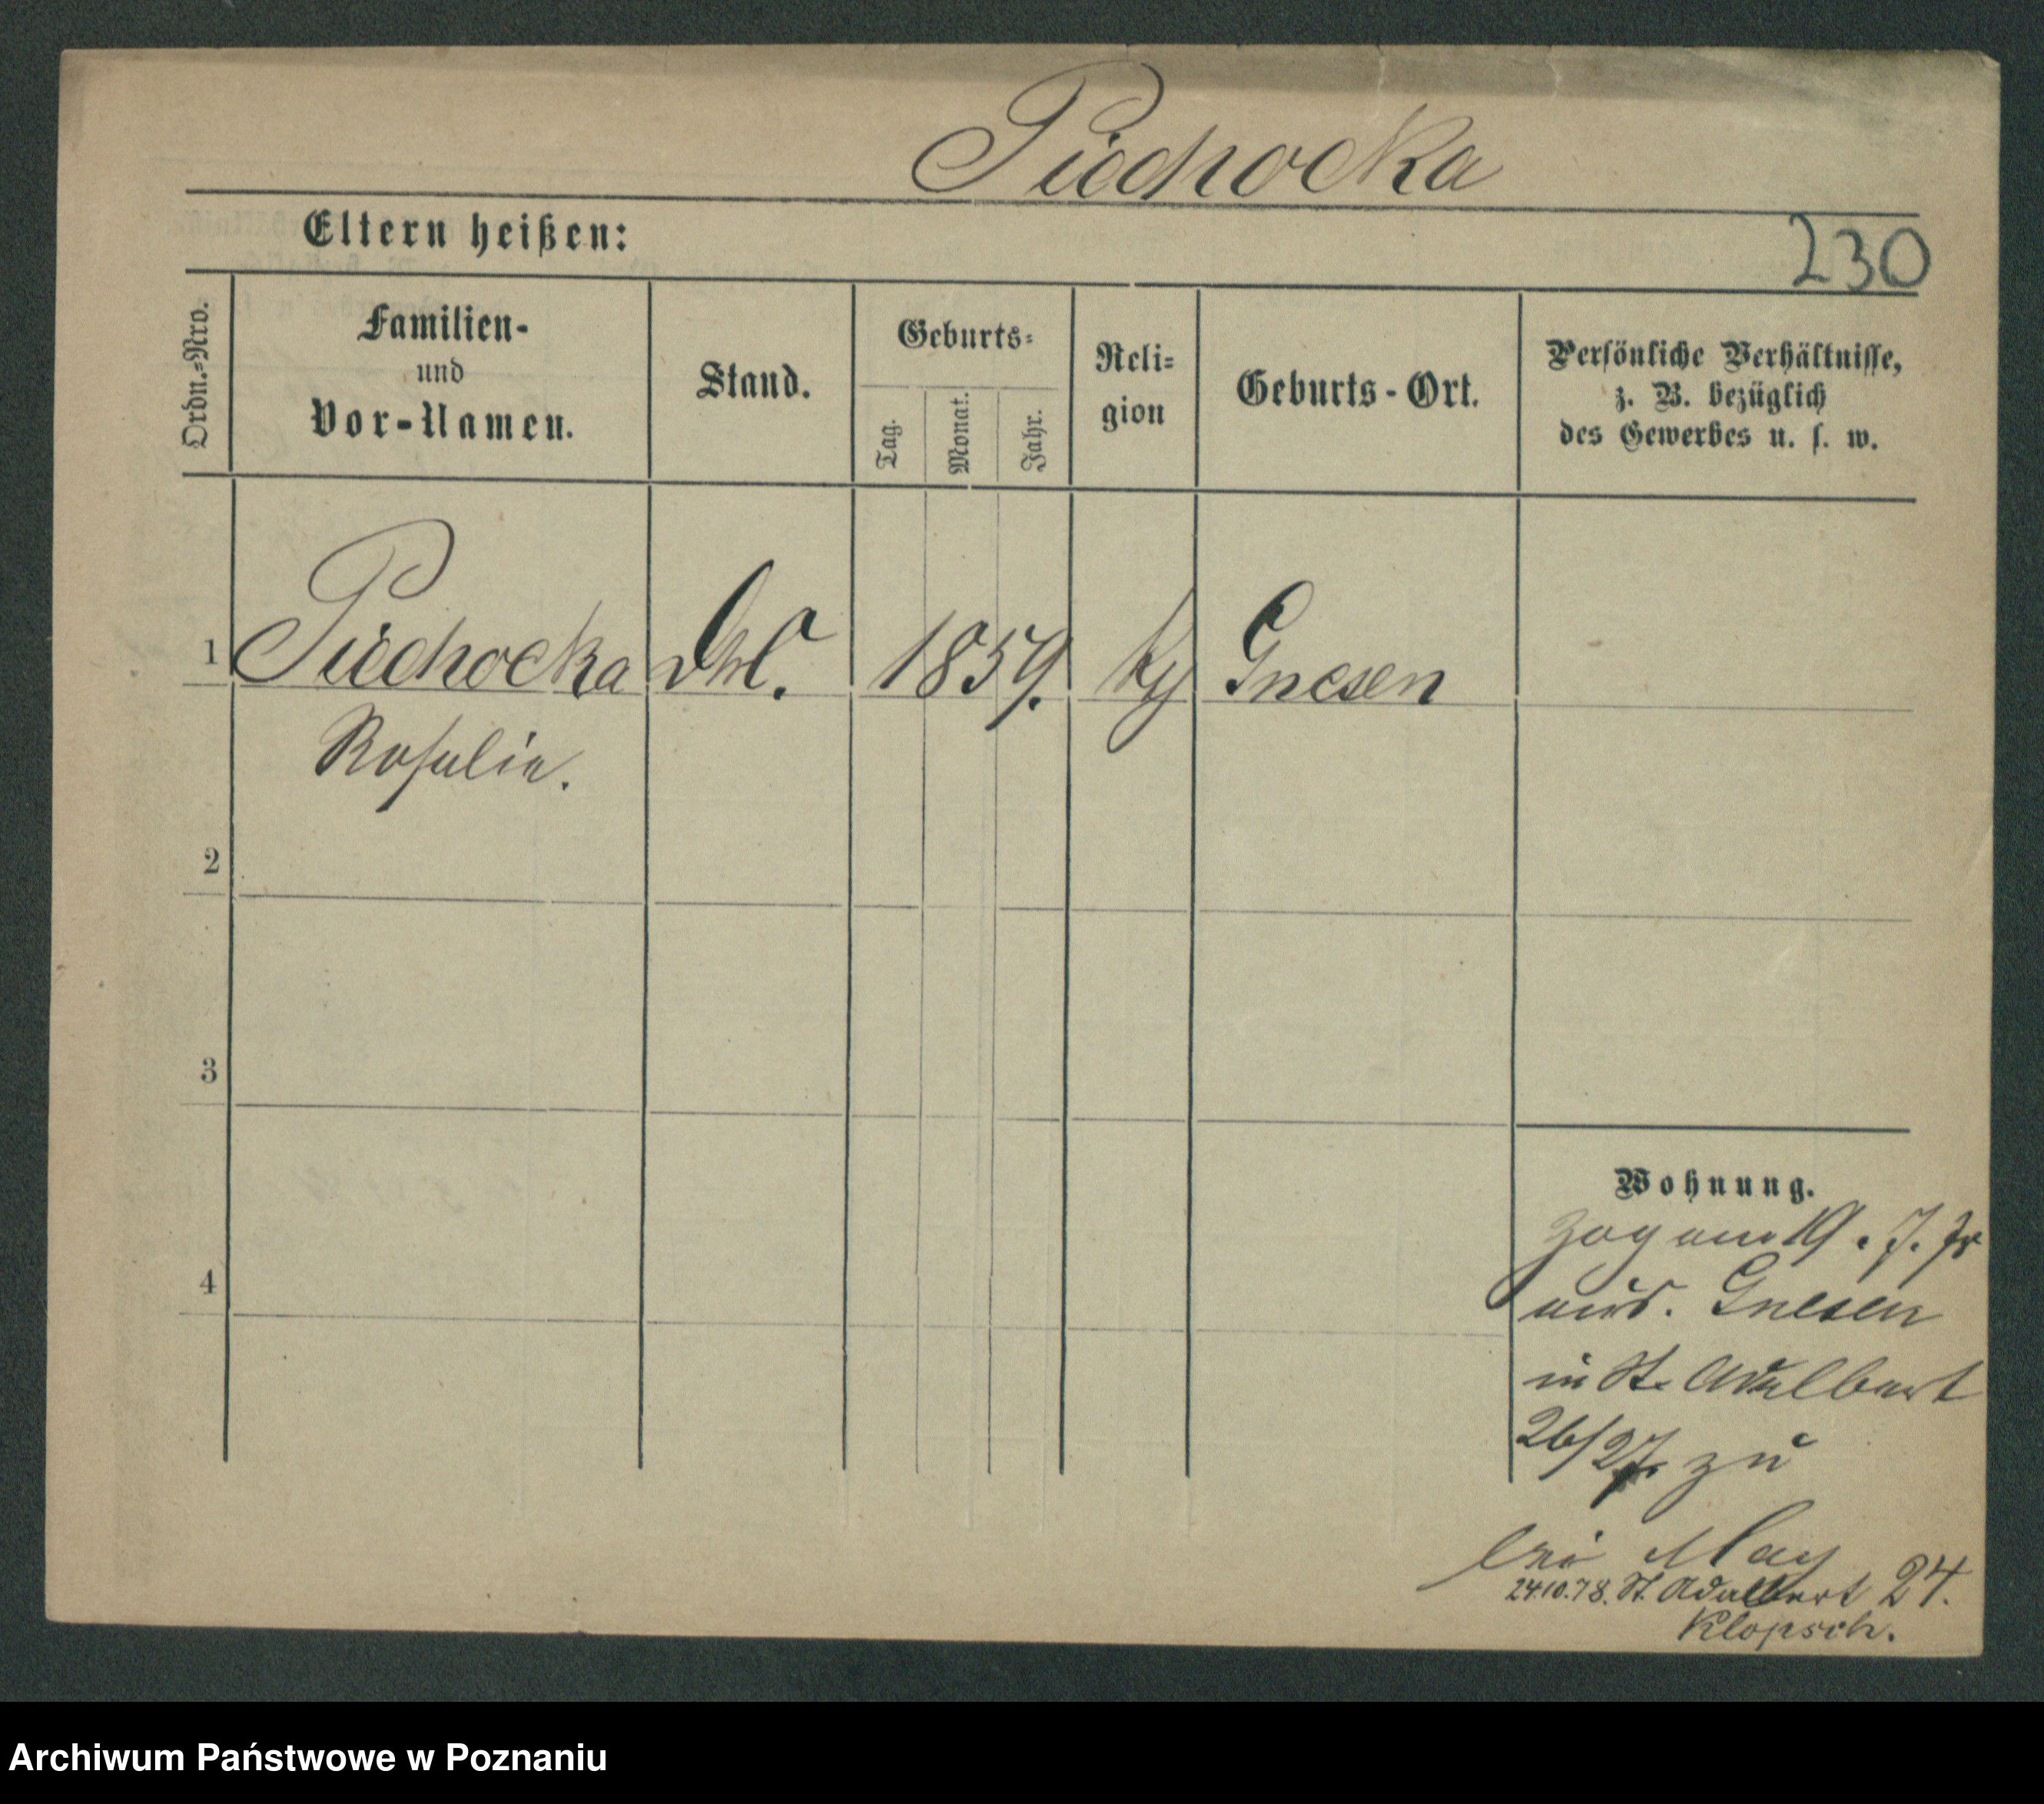 Piechocka
Eltern heißen:
230
Ordn.-Nro.
Familien-
und
Vor-Namen.
Stand.
Geburts-
Tag.
Monat.
Jahr.
Reli-
gion
Geburts-Ort.
Persönliche Verhältnisse,
z. B. bezüglich
des Gewerbes u. s. w.
1 Piechocka 1859. Gnesen
Rosalie.
2
3
4
Wohnung.
Zog am 19. 7.
aus. Gnesen
in St. Adalbert
26/27. zu
bei May
24.10.78. St. Adalbert 24.
Klopsch.
Archiwum Państwowe w Poznaniu